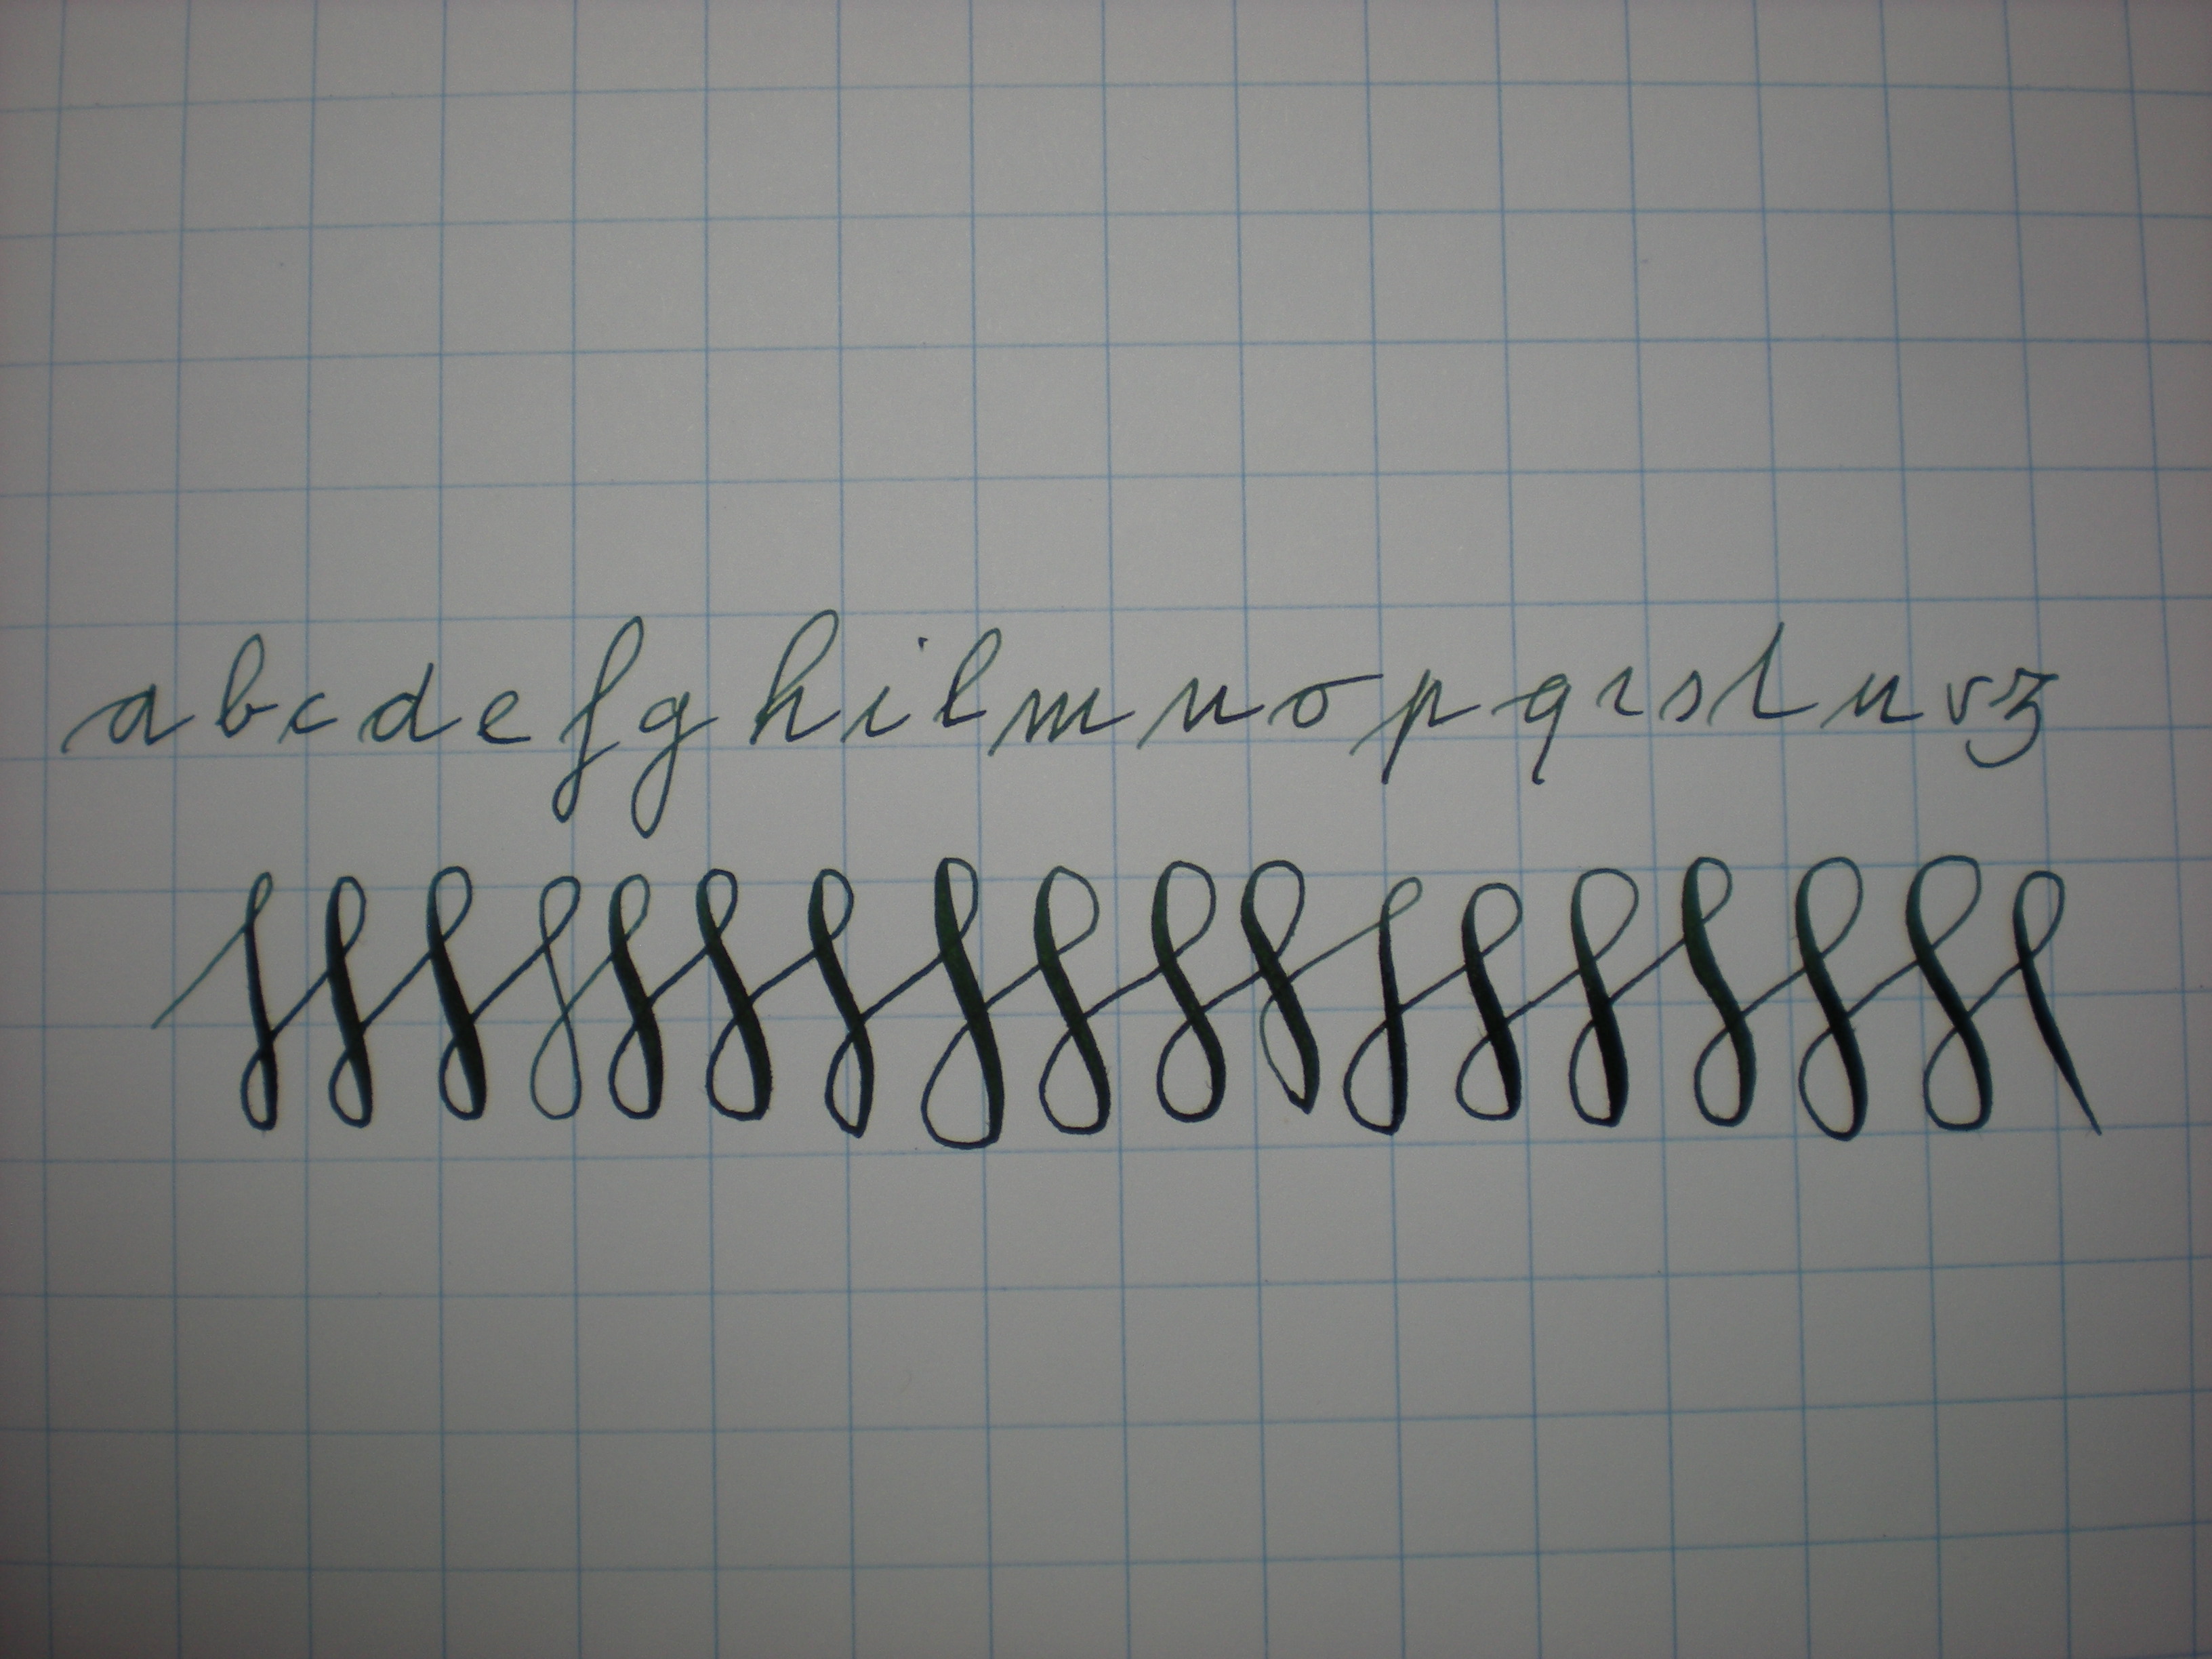 a b c d e f g h i l m n o p q r s t u v z